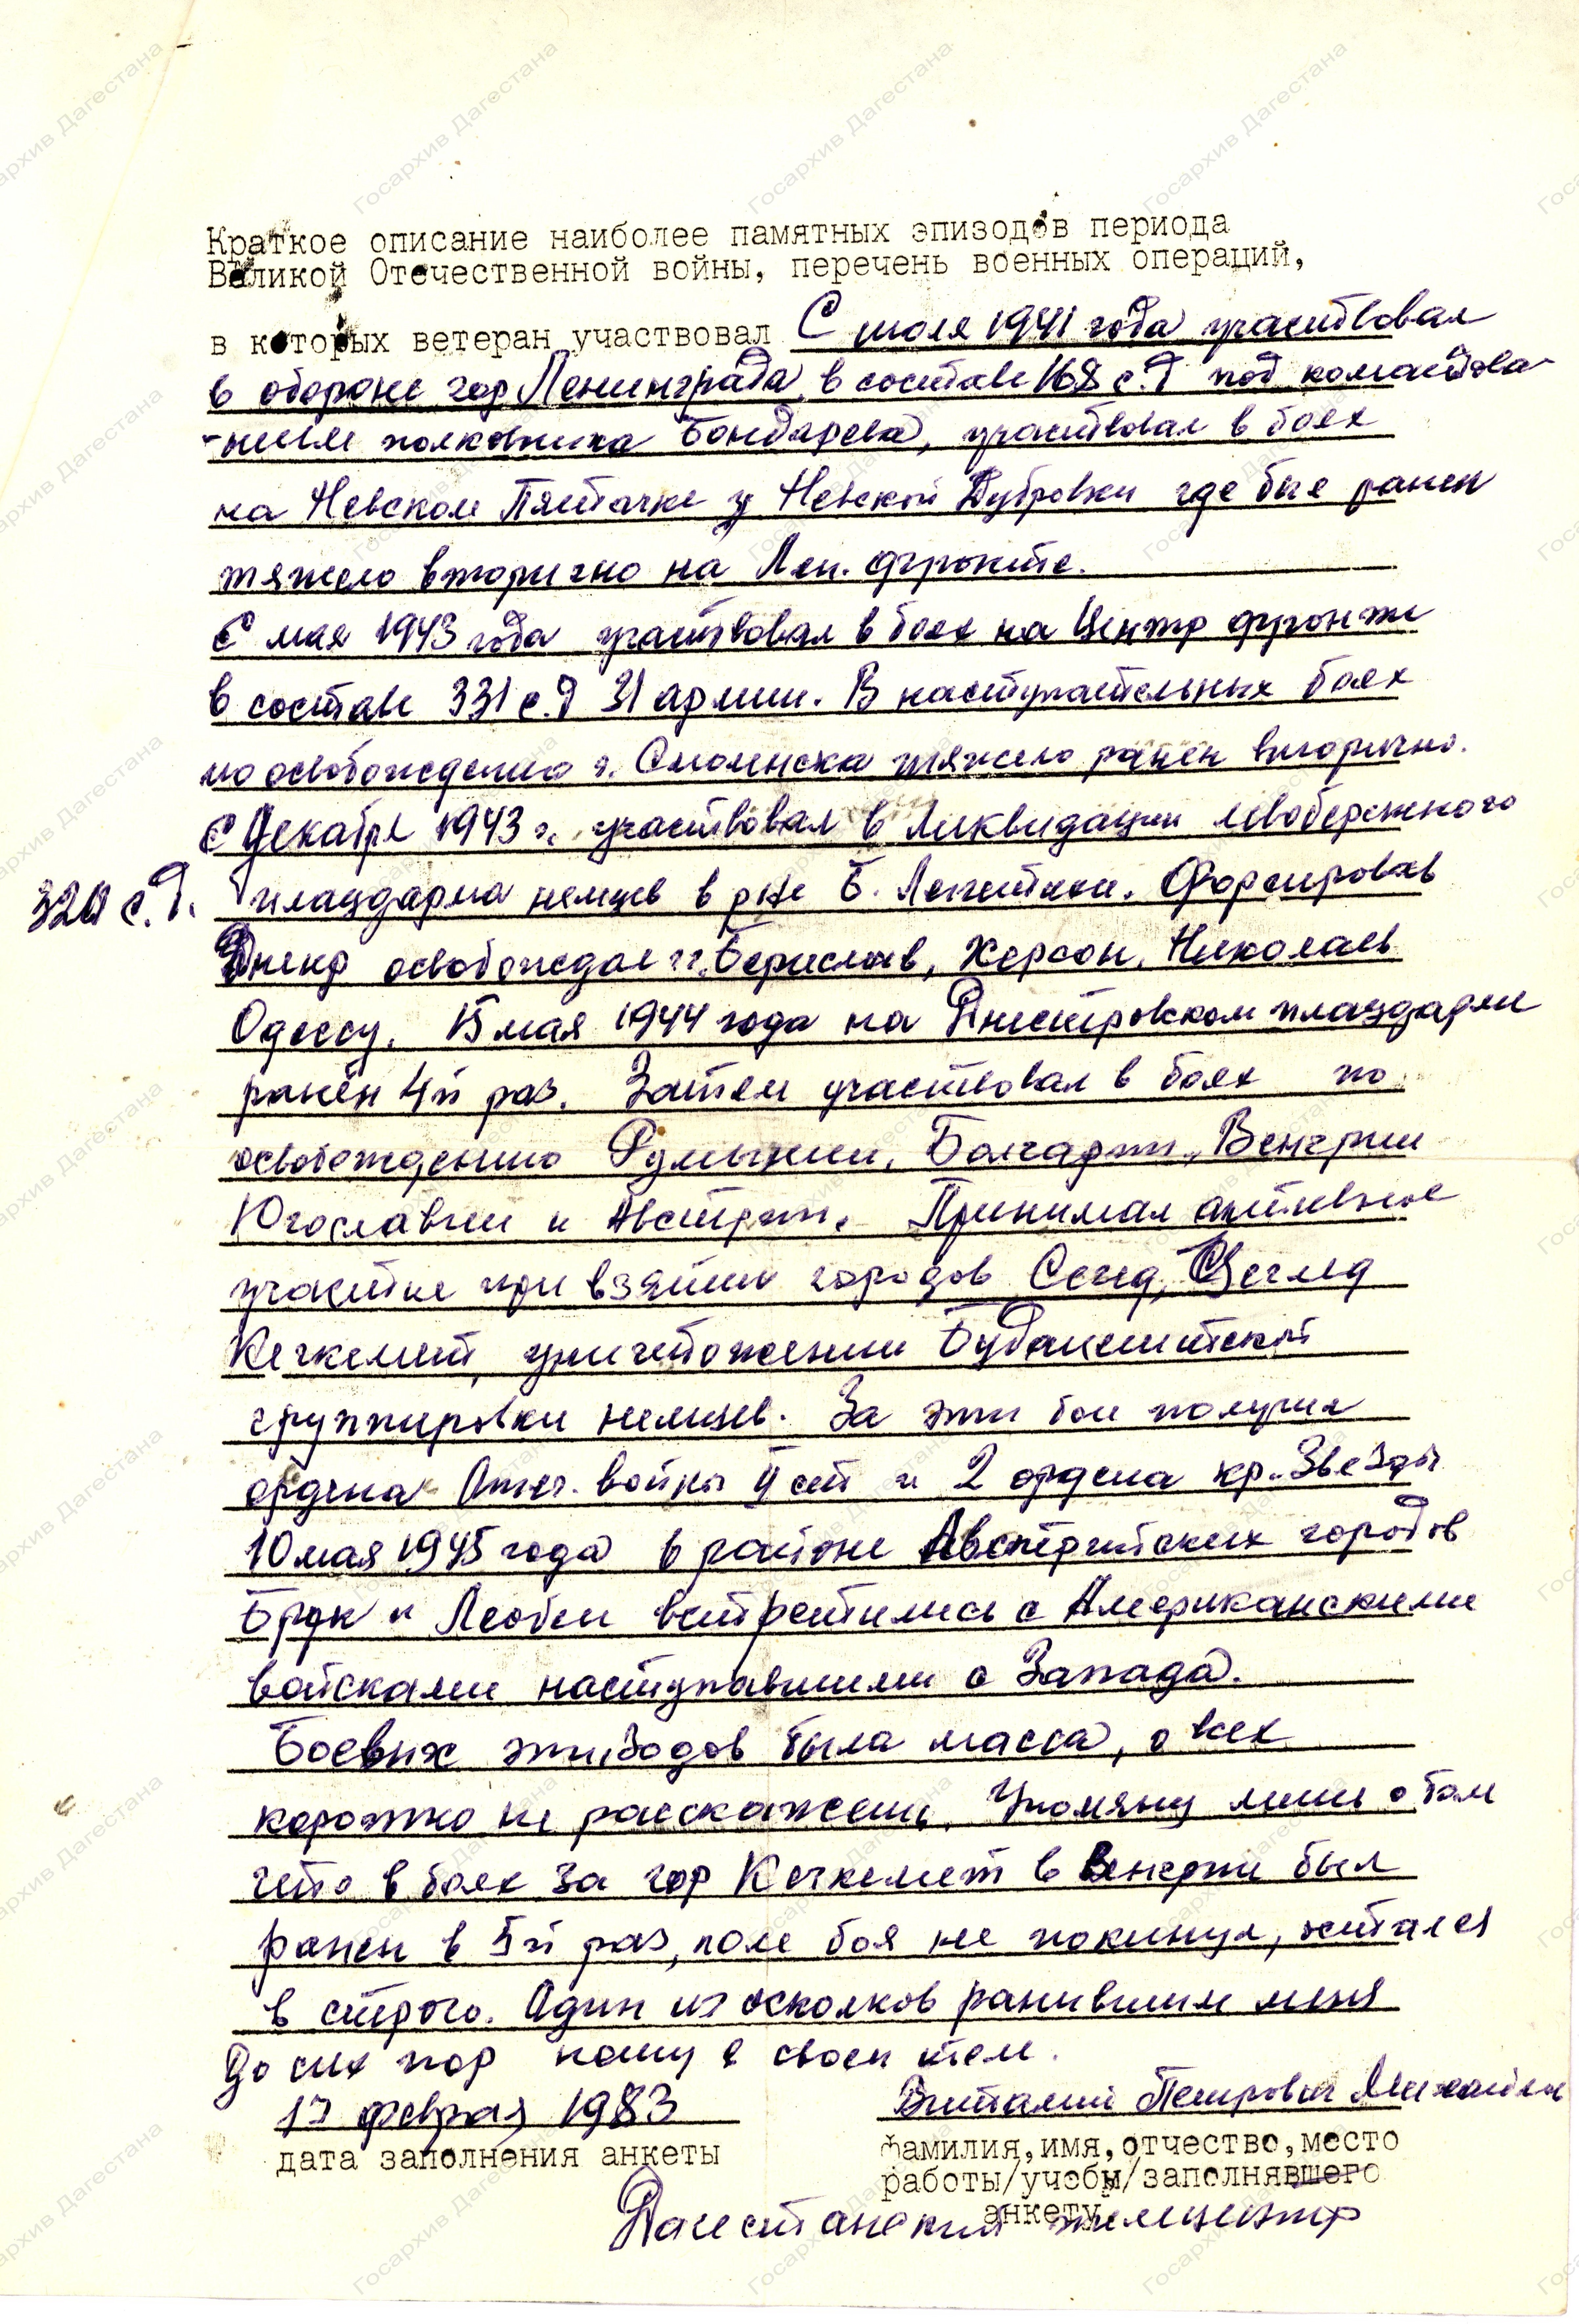 Краткое описание наиболее памятных эпизодов периода
Великой Отечественной войны, перечень военных операций,
в которых ветеран участвовал С июля 1941 года участвовал
в обороне гор Ленинграда в составе 168 с.д под командова-
-нием полковника Бондарева, участвовал в боях
на Невском Пятачке у Невской Дубровки где был ранен
тяжело вторично на Лен. фронте.
С мая 1943 года участвовал в боях на Центр фронте
в составе 331 с.д 31 армии. В наступательных боях
по освобождению г. Смоленска тяжело ранен вторично.
С Декабря 1943 г. участвовал в ликвидации левобережного
320 с.д. плацдарма немцев в р-не Б. Лепетихи. Форсировав
Днепр освобождал гг. Берислав, Херсон, Николаев
Одессу. 15 мая 1944 года на Днестровском плацдарме
ранен 4й раз. Затем участвовал в боях по
освобождению Румынии, Болгарии, Венгрии
Югославии и Австрии. Принимал активное
участие при взятии городов Сегед, Цеглед
Кечкемет, уничтожении Будапештской
группировки немцев. За эти бои получил
ордена Отеч. войны II ст и 2 ордена кр. Звезды
10 мая 1945 года в районе Австрийских городов
Брук и Леобен встретились с Американскими
войсками наступавшими с Запада.
Боевых эпизодов была масса, о всех
коротко не расскажешь. Упомяну лишь о том
что в боях за гор Кечкемет в Венгрии был
ранен в 5й раз, поле боя не покинул, остался
в строю. Один из осколков ранившим меня
До сих пор ношу в своем теле.
17 февраля 1983 Виталий Петрович
дата заполнения анкеты
фамилия, имя, отчество, место
работы/учебы/заполнявшего
анкету
Дагестанский телецентр
Госархив Дагестана